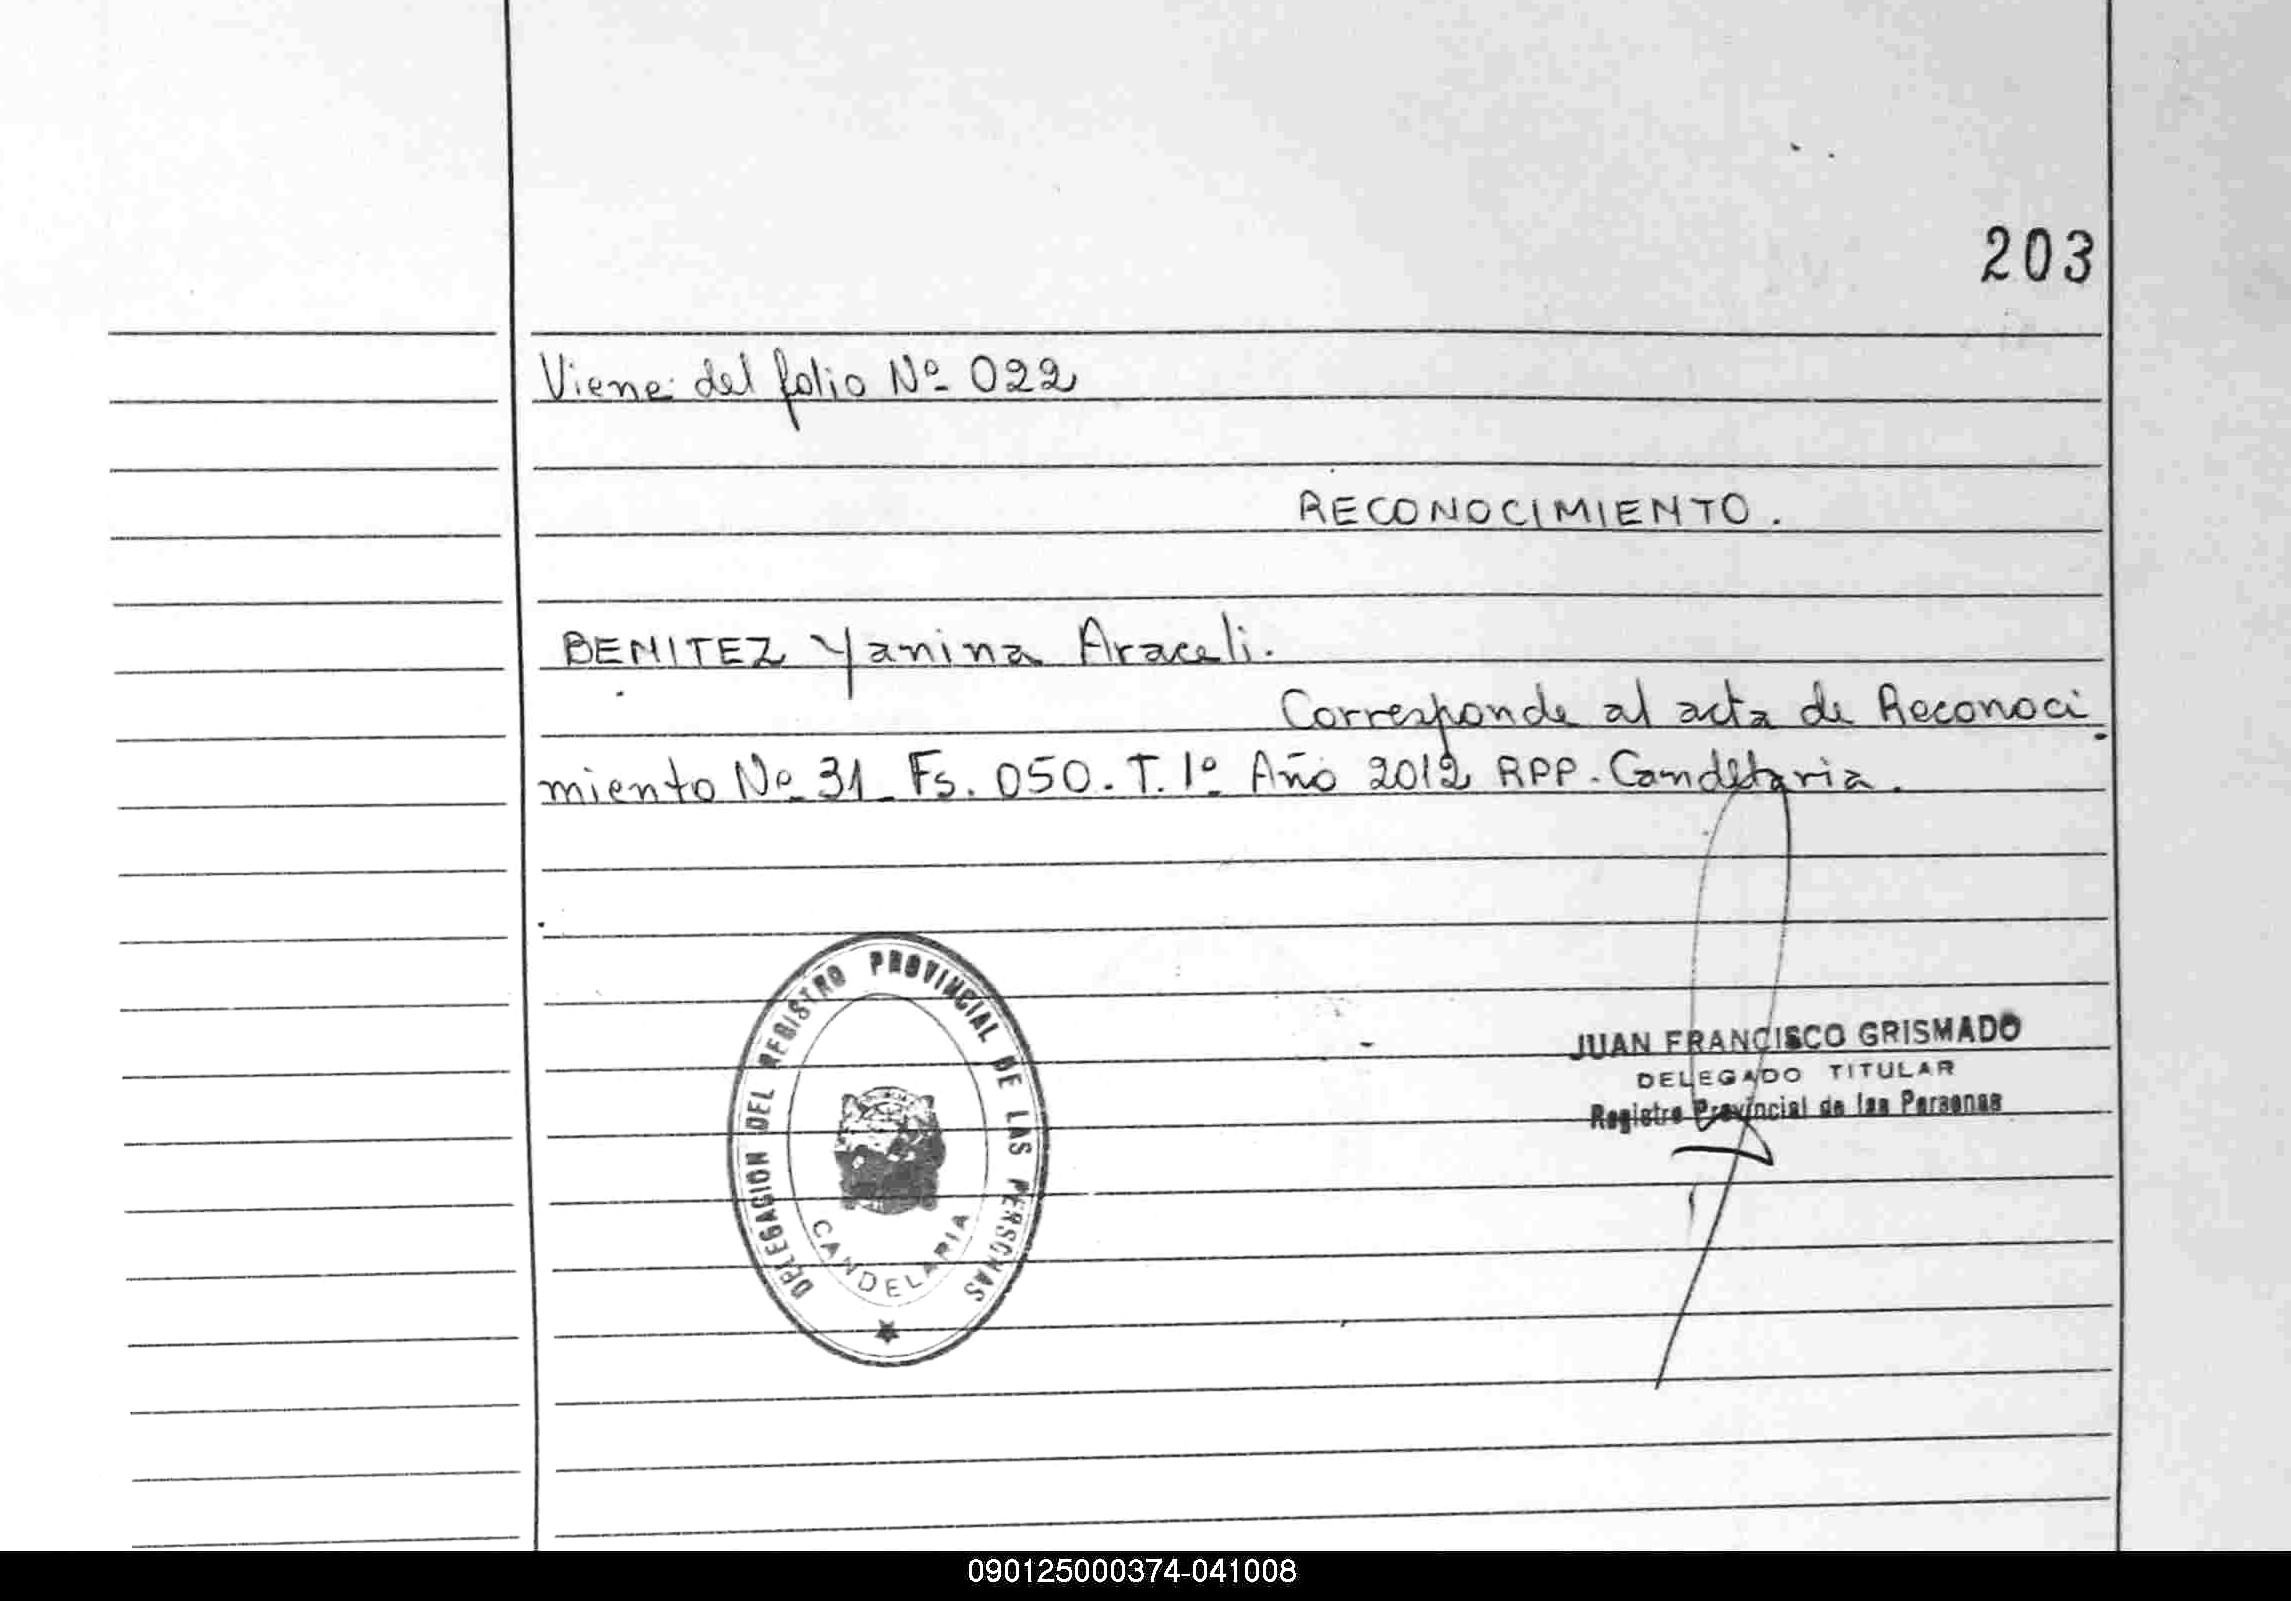 203
Viene del folio Nº 022
RECONOCIMIENTO.
BENITEZ Yanina Araceli.
Corresponde al acta de Reconoci
miento Nº 31 Fs. 050. T. 1º Año 2012 RPP. Candelaria.
DELEGACION DEL REGISTRO PROVINCIAL DE LAS PERSONAS
CANDELARIA
JUAN FRANCISCO GRISMADO
DELEGADO TITULAR
Registro Provincial de las Personas
090125000374-041008